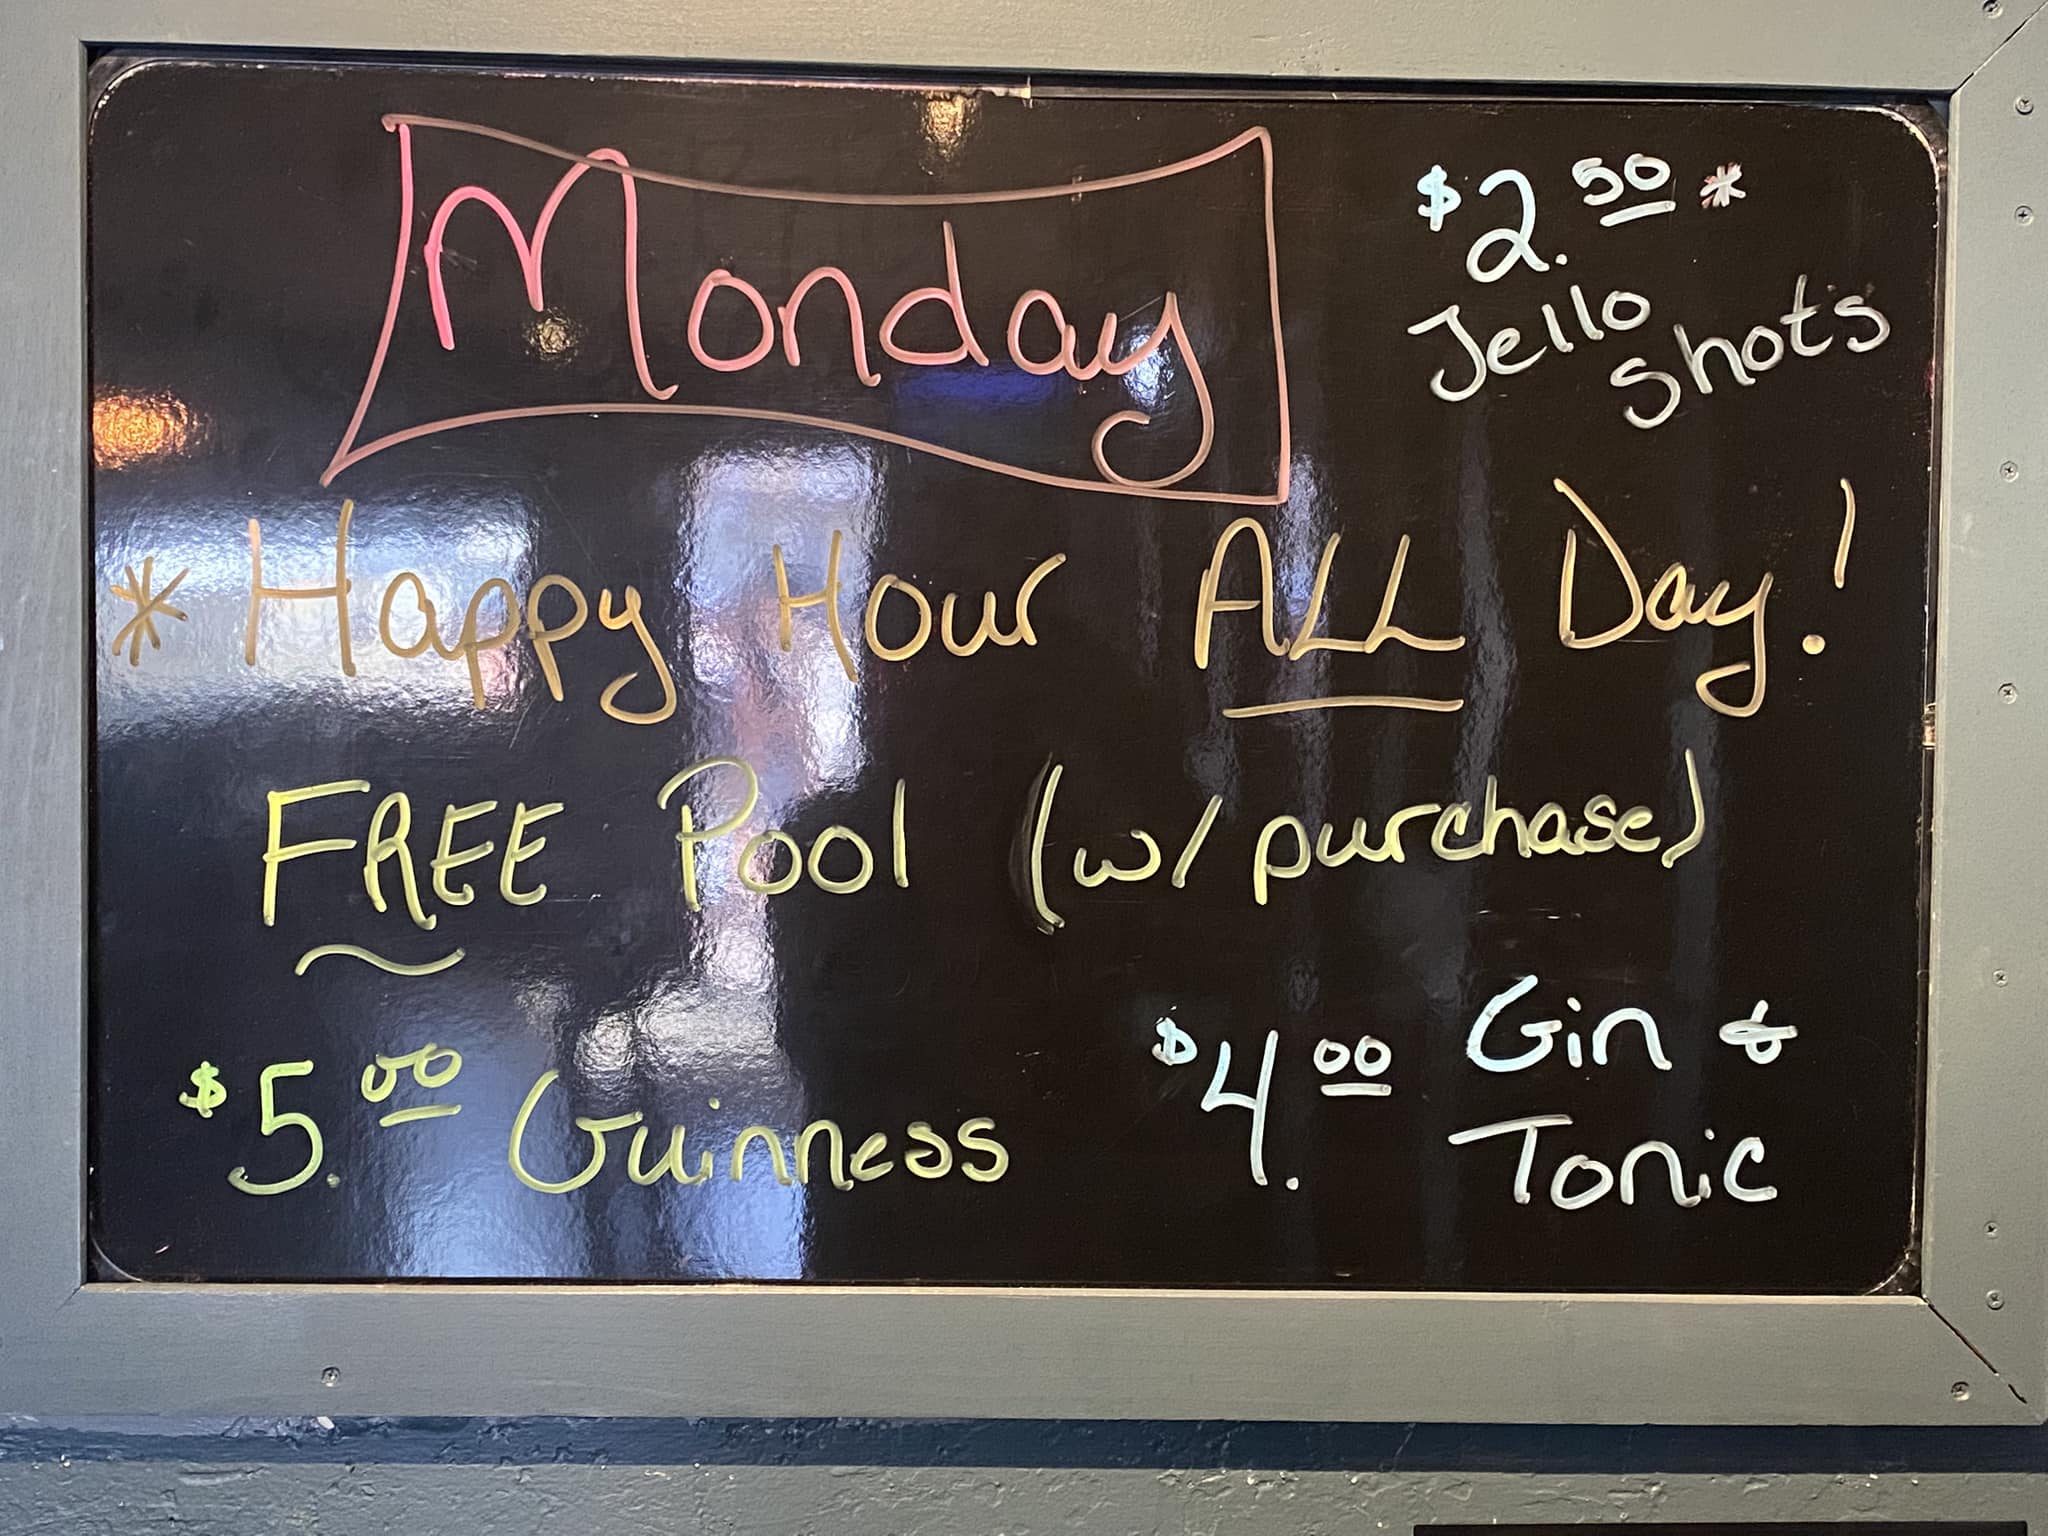 Monday
$2.50 *
Jello Shots
* Happy Hour ALL Day!
FREE Pool (w/ purchase)
$5.00 Guinness
$4.00 Gin &
Tonic